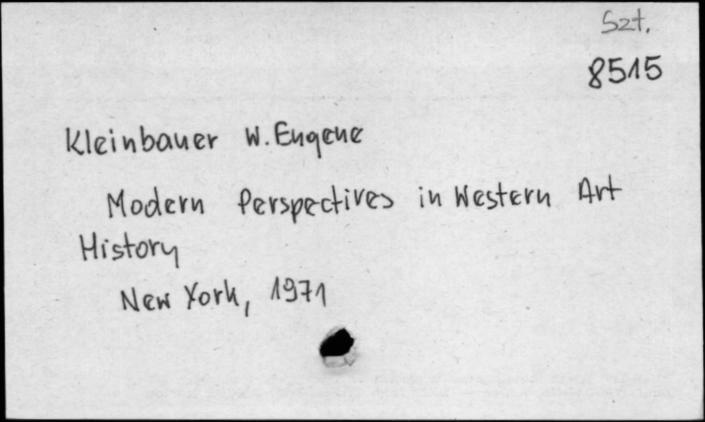 Szt.
8515
Kleinbauer W. Eugene
Modern Perspectives in Western Art
History
New York, 1971